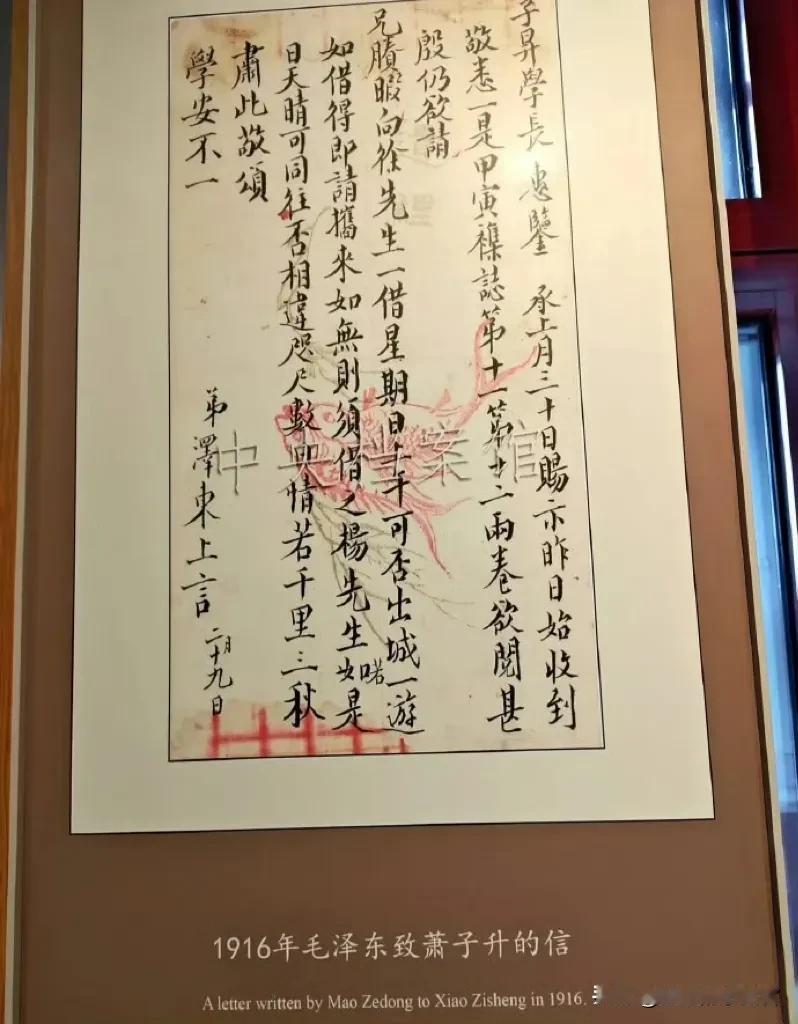 子昇學長 惠鑒 承上月三十日賜示昨日始收到
敬悉一是甲寅襍誌第十一第十二兩卷欲閱甚
殷仍欲請
兄賸暇向徐先生一借星期日上午可否出城一遊
如借得即請攜來如無則須借之楊先生如是
日天晴可同往否相違咫尺數日情若千里三秋
肅此敬頌
學安不一
弟澤東上言 二月十九日
1916年毛泽东致萧子升的信
A letter written by Mao Zedong to Xiao Zisheng in 1916.